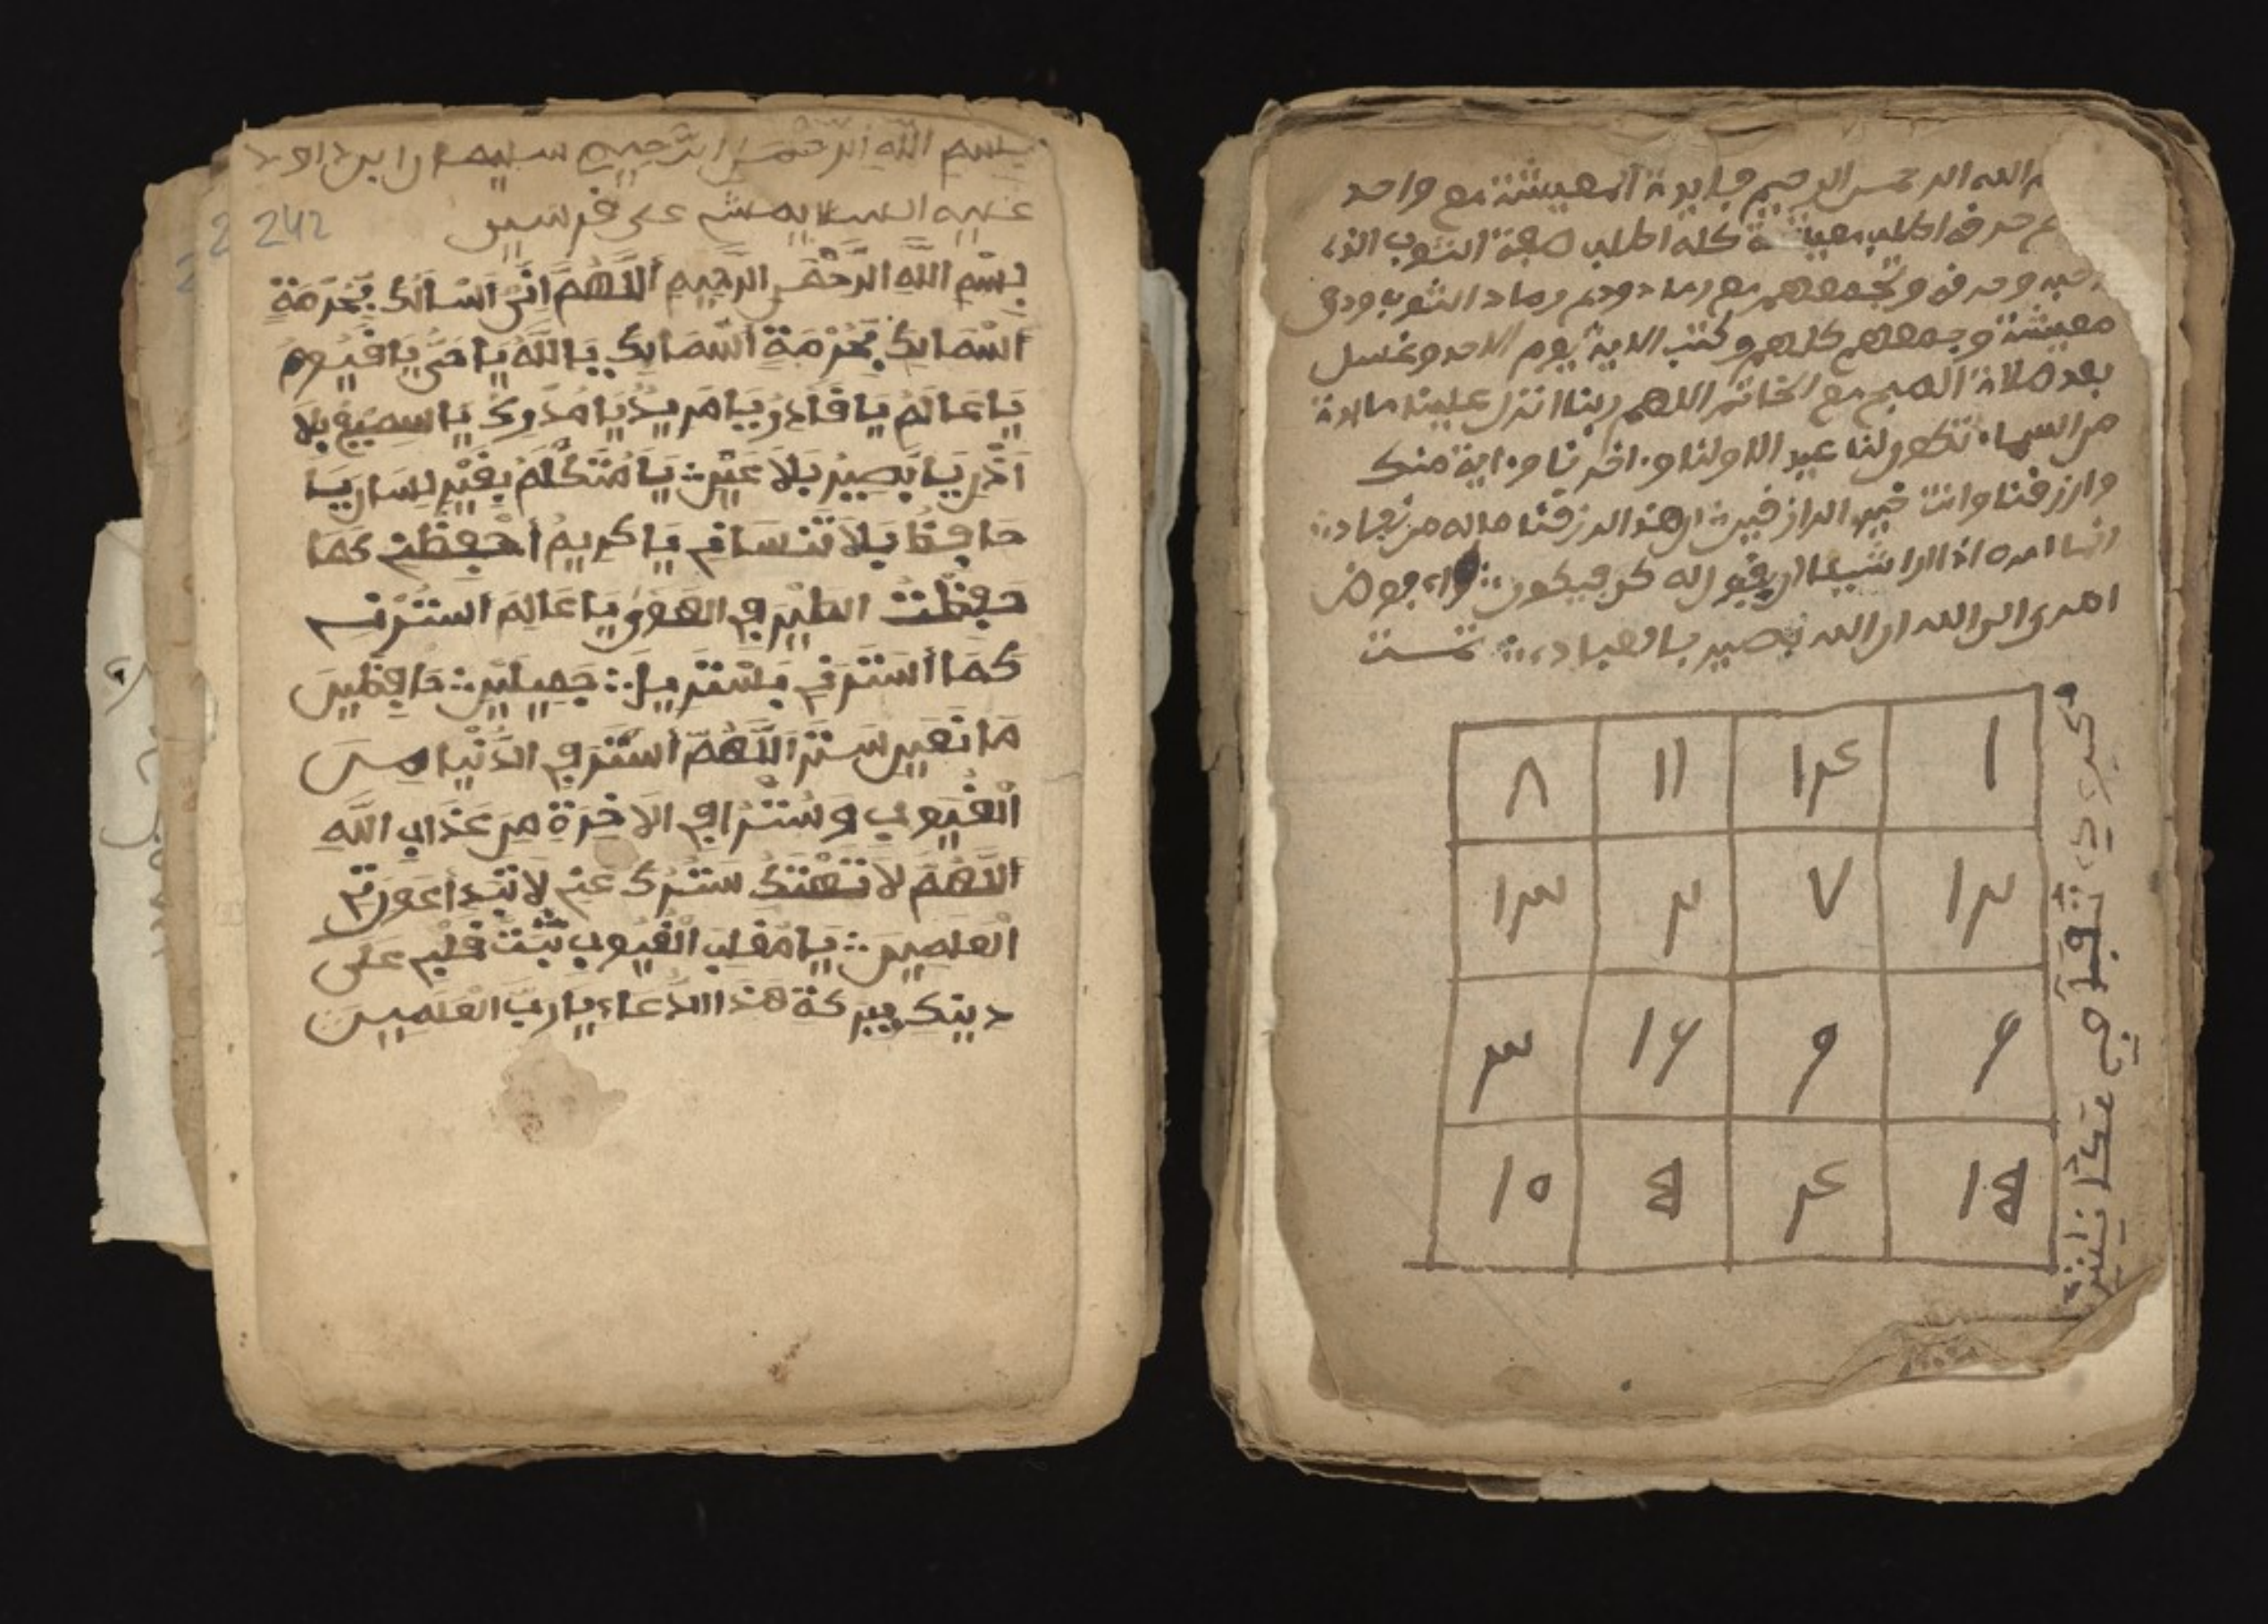 بسم الله الرحمن الرحيم سليمان ابن داود
عليه السلا يمش على فرسين
242
بِسْمِ اللهِ الرَّحْمٰنِ الرَّحِيمِ اَللَّهُمَّ اِنِّي اَسْاَلُكَ بِحُرْمَةِ
اَسْمَايِكَ بِحُرْمَةِ اَسْمَايِكَ يَا اللَّهُ يَا حَيُّ يَا قَيُّومُ
يَا عَالِمُ يَا قَادِرُ يَا مَرِيدُ يَا مَدْرِكُ يَا سِمِيعُ بِلَا
اَذْرِ يَا بَصِيرُ بَلَا عَيْنٍ يَا مُتَكَلِّمُ بِغَيْرِ لِسَانٍ يَا
حَافِظُ بَلَا تَنْسَانِ يَا كَرِيمُ اَحْفِظْنِ كَمَا
حَفِظْتَ الطَّيْرِ فِي الهَوَى يَا عَالِمَ اَسْتُرْنِي
كَمَا اَسْتَرْنِي بَسْتَرِ جَمِيلَيْنِ حَافِظِينَ
مَا نَعَيْنِ سَتْرَ اَللَّهُمَّ اَسْتُرْ فِي الدُّنْيَا مِنَ
الْغُيُوبِ وَسُتْرًا فِي الْاَخِرَةِ مِنَ عَذَابِ اللَّهِ
اَللَّهُمَّ لَا تَهْتَكْ سَتْرَكَ عَنِي لَا تَبْدِ اَعَوْرَتِي
الْعلَمِينَ يَا مُقَلِّبَ الْغُيُوبِ ثَبِّتْ قَلْبِي عَلَى
دِينِكَ بِبَرَكَةِ هَذَا الدُّعَاءِ يَا رَبَّ الْعَلَمِينَ
الله الرحمن الرحيم فايدة المعيشة مع واحد
حرفه اطلب معيشة كله اطلب صعة الثوب الذ
وحرفه وتجمعهم مع رماد ودم رماد الثوب ودق
معيشة وجمعهم كلهم وكتب الاية يوم الاحد وغسل
بعد صلاة الصبح مع الخاتم اللهم ربنا انزل علينا مايدة
من السماء تكون لنا عيد الاولنا واخرنا واية منك
وارزقنا وانت خير الرازقين ان هذا لرزقنا ماله من نفاد
انما امره اذا اراد شيئا ان يقول له كن فيكون وافوض
امري الى الله ان الله بصير بالعباد تمت
٨ ١١ ١٤ ١
١٣ ٢ ٧ ١٢
٣ ١٦ ٩ ٦
١٠ ٥ ٤ ١٥